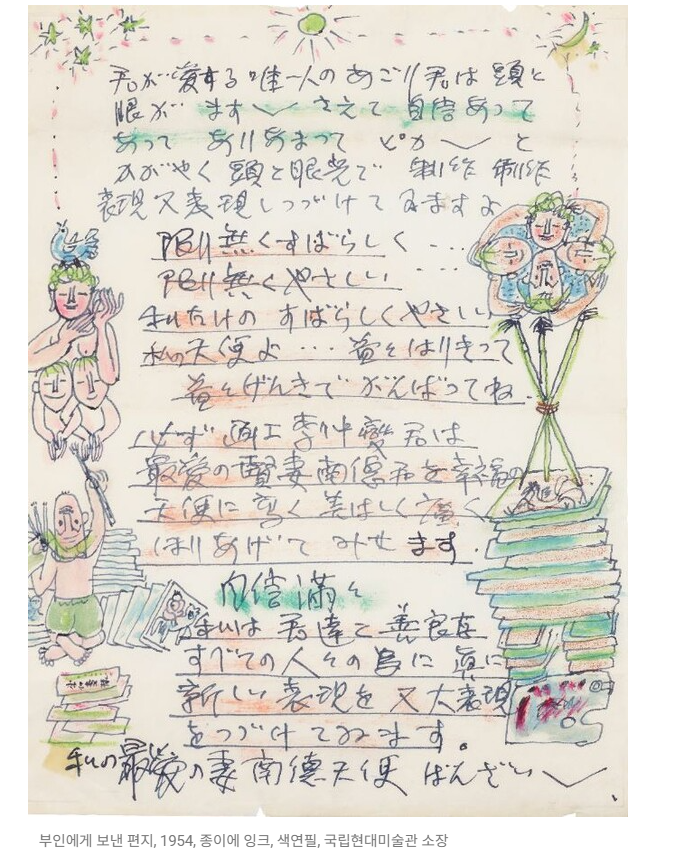 君が愛する唯一人のあごリ君は頭と
眼が ます〱 さえて 自信あって
あって ありあまって ピカ〱 と
かがやく 頭と眼光で 制作 制作
表現又表現しつづけてゐますよ
限り無くすばらしく ・・・
限り無くやさしい ・・・
私だけの すばらしくやさしい
私の天使よ ・・・ 益々はりきって
益々げんきで がんばってね.
必ず 画工 李仲燮君は
最愛の賢妻南德君を幸福の
天使に 高く 美しく 広く
ほりあげて みせ ます.
自信満々
私は 君達と 善良な
すべての人々の為に 真に
新しい 表現を 又 大表現
をつづけてゐます。
私の最愛の妻 南德天使 ばんざい〱
부인에게 보낸 편지, 1954, 종이에 잉크, 색연필, 국립현대미술관 소장